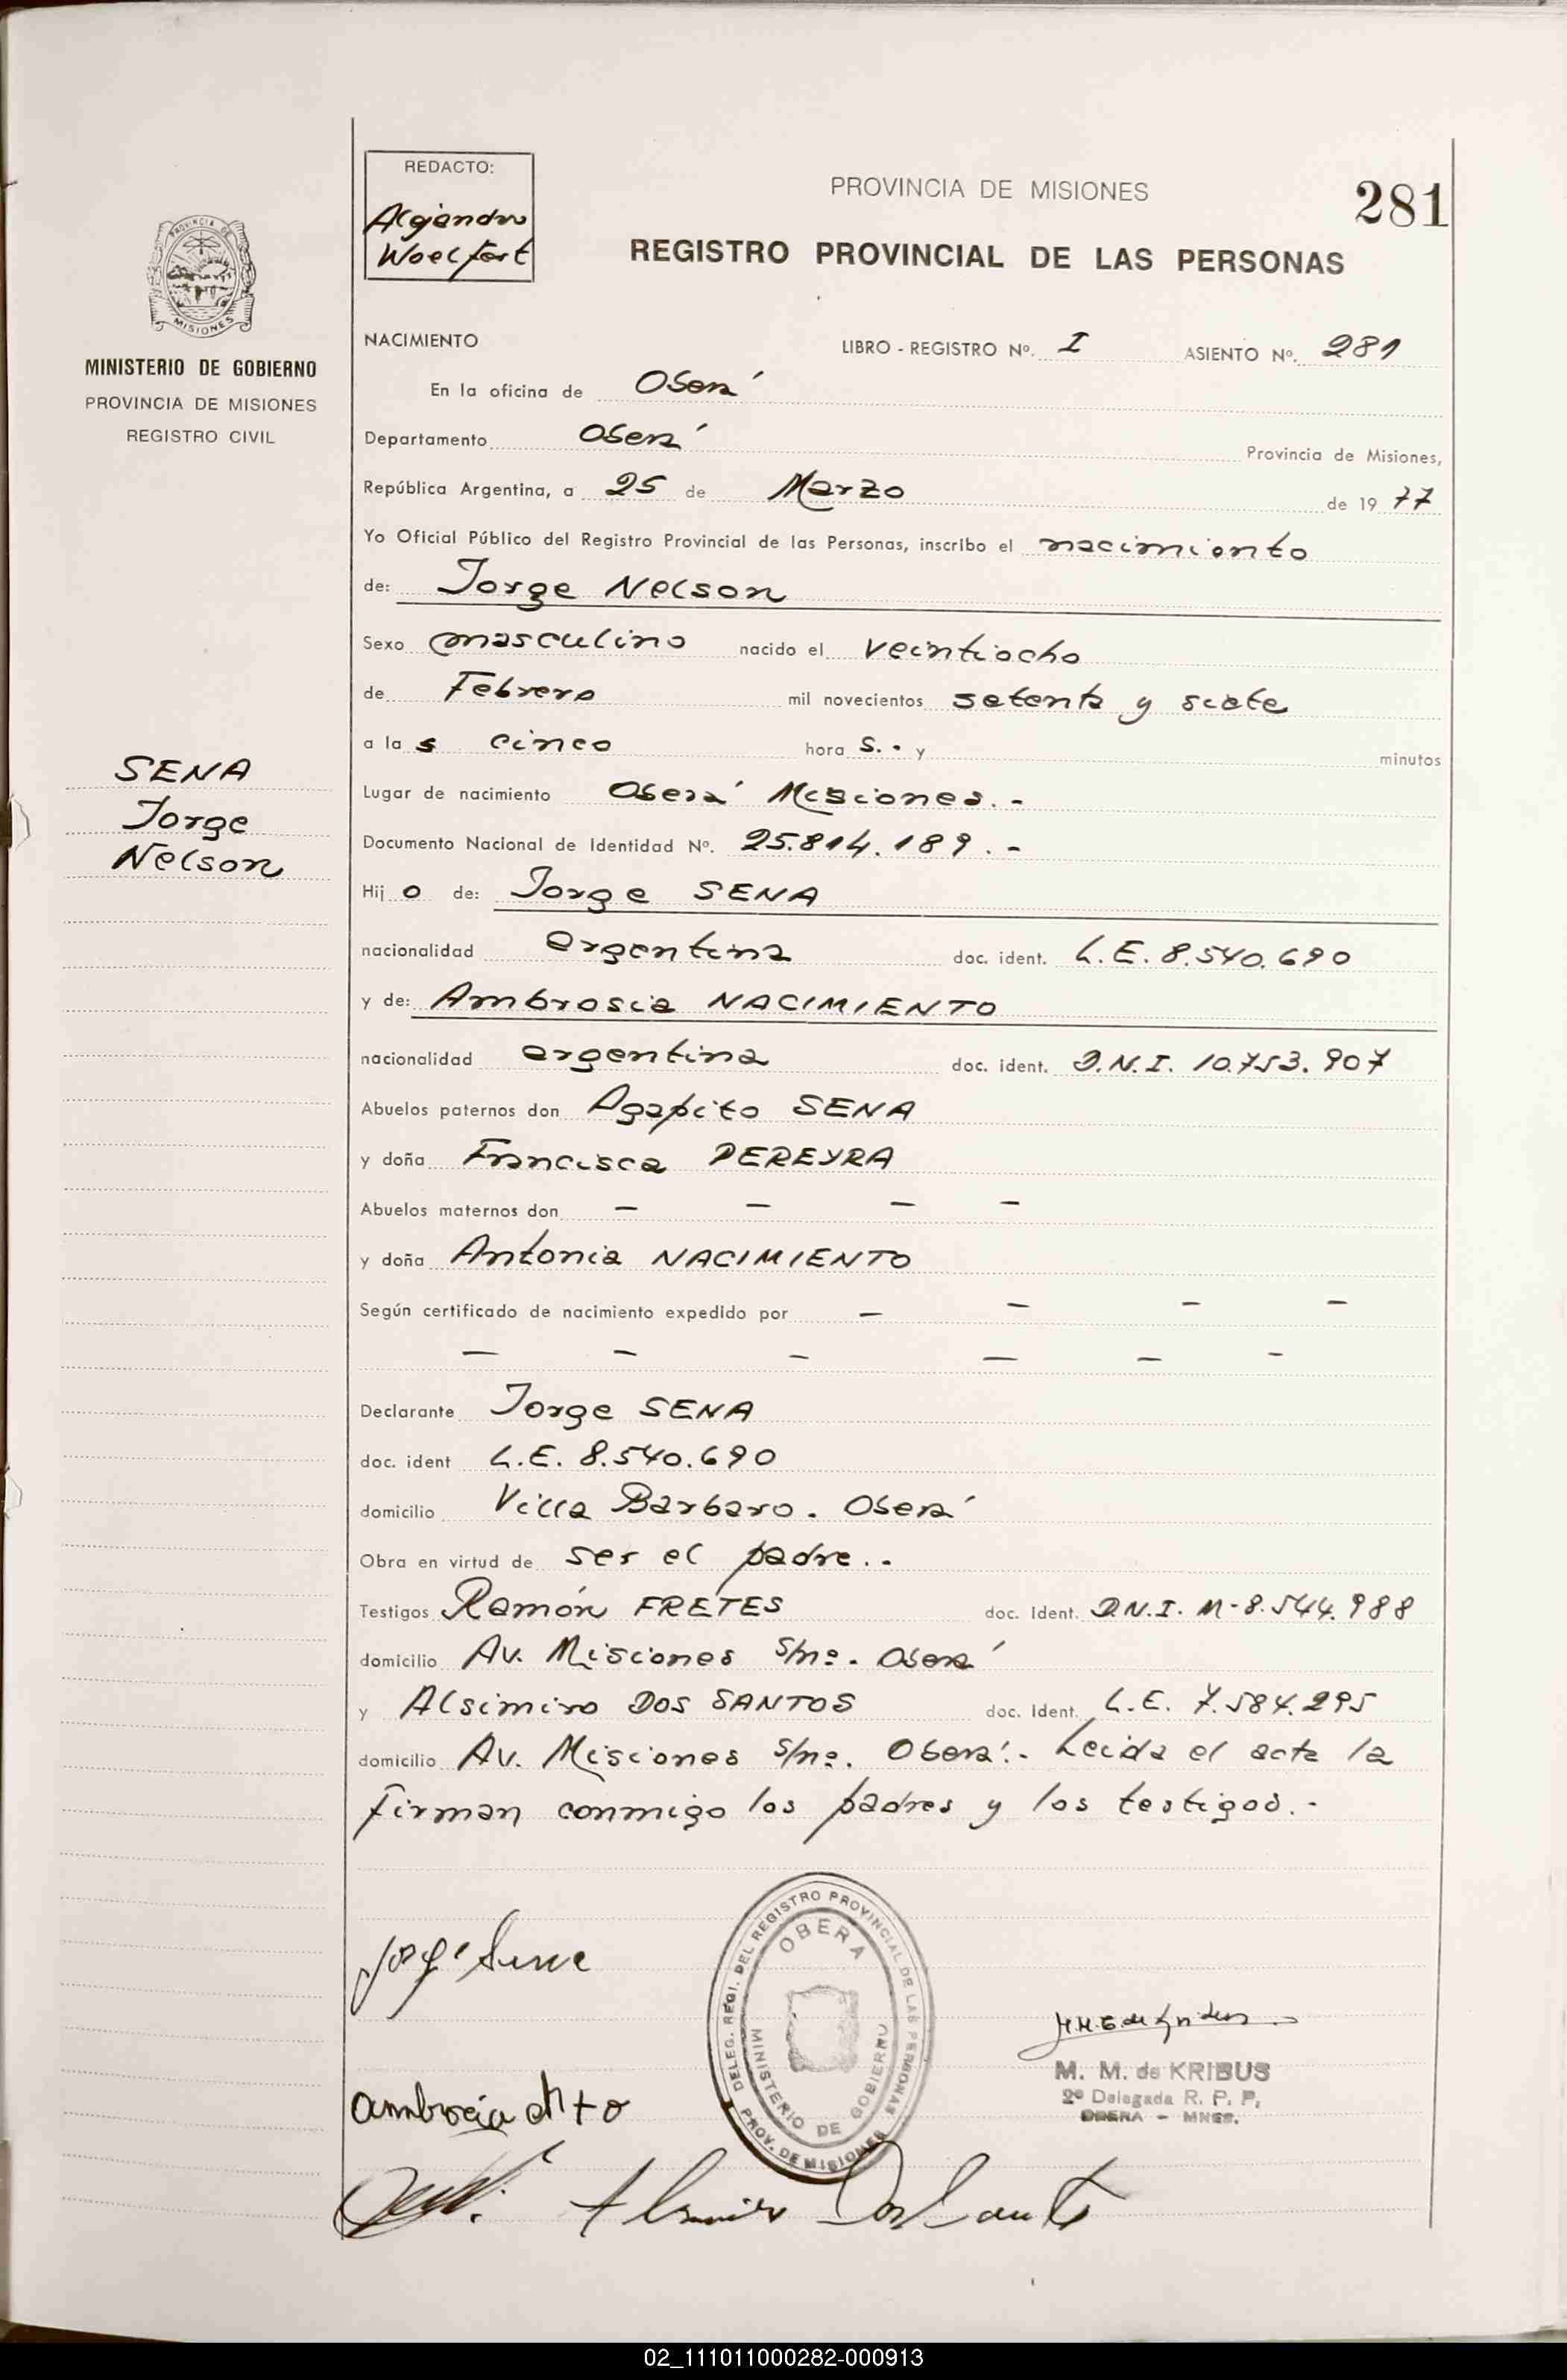 REDACTO:
Alejandro
Woelfert
PROVINCIA DE MISIONES
281
REGISTRO PROVINCIAL DE LAS PERSONAS
PROVINCIA DE
MISIONES
MINISTERIO DE GOBIERNO
PROVINCIA DE MISIONES
REGISTRO CIVIL
SENA
Jorge
Nelson
NACIMIENTO LIBRO - REGISTRO Nº. I ASIENTO Nº. 281
En la oficina de Oberá
Departamento Oberá Provincia de Misiones,
República Argentina, a 25 de Marzo de 19 77
Yo Oficial Público del Registro Provincial de las Personas, inscribo el nacimiento
de: Jorge Nelson
Sexo masculino nacido el veintiocho
de Febrero mil novecientos setenta y siete
a la s cinco hora s.- y minutos
Lugar de nacimiento Oberá Misiones.-
Documento Nacional de Identidad Nº. 25.814.189.-
Hij o de: Jorge SENA
nacionalidad argentina doc. ident. L.E. 8.540.690
y de: Ambrosia NACIMIENTO
nacionalidad argentina doc. ident. D.N.I. 10.753.907
Abuelos paternos don Agapito SENA
y doña Francisca PEREYRA
Abuelos maternos don — — — —
y doña Antonia NACIMIENTO
Según certificado de nacimiento expedido por — — — —
— — — — — —
Declarante Jorge SENA
doc. ident L.E. 8.540.690
domicilio Villa Barbaro. Oberá
Obra en virtud de ser el padre..
Testigos Ramón FRETES doc. Ident. D.N.I. M-8.544.988
domicilio Av. Misiones s/nº. Oberá
y Alsimiro DOS SANTOS doc. Ident. L.E. 7.584.295
domicilio Av. Misiones s/nº. Oberá.- Leida el acta la
firman conmigo los padres y los testigos.-
DELEG. REGI. DEL REGISTRO PROVINCIAL DE LAS PERSONAS
OBERA
MINISTERIO DE GOBIERNO
PROV. DE MISIONES
M. M. de KRIBUS
2º Delegada R. P. P.
OBERA - MNES.
02_111011000282-000913